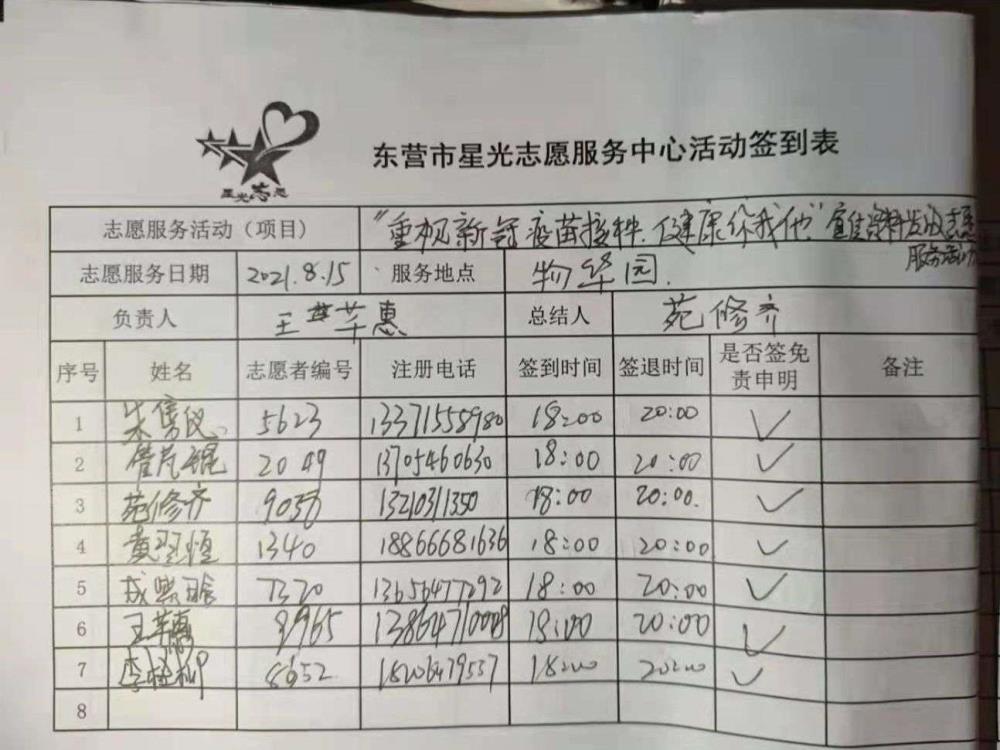 星光志愿
东营市星光志愿服务中心活动签到表
志愿服务活动（项目） "重视新冠疫苗接种、健康你我他"宣传资料发放志愿
服务活动
志愿服务日期 2021.8.15 服务地点 物华园.
负责人 王苹惠 总结人 苑修齐
序号 姓名 志愿者编号 注册电话 签到时间 签退时间 是否签免责申明 备注
1 5623 13371558980 18:00 20:00 ✓
2 2049 13705460630 18:00 20:00 ✓
3 苑修齐 9056 13210311350 18:00 20:00. ✓
4 黄翌恒 1340 18866681636 18:00 20:00 ✓
5 成熙晗 7320 13656477292 18:00 20:00 ✓
6 王苹惠 9965 18:00 20:00 ✓
7 8652 18206479557 18:00 20:00 ✓
8